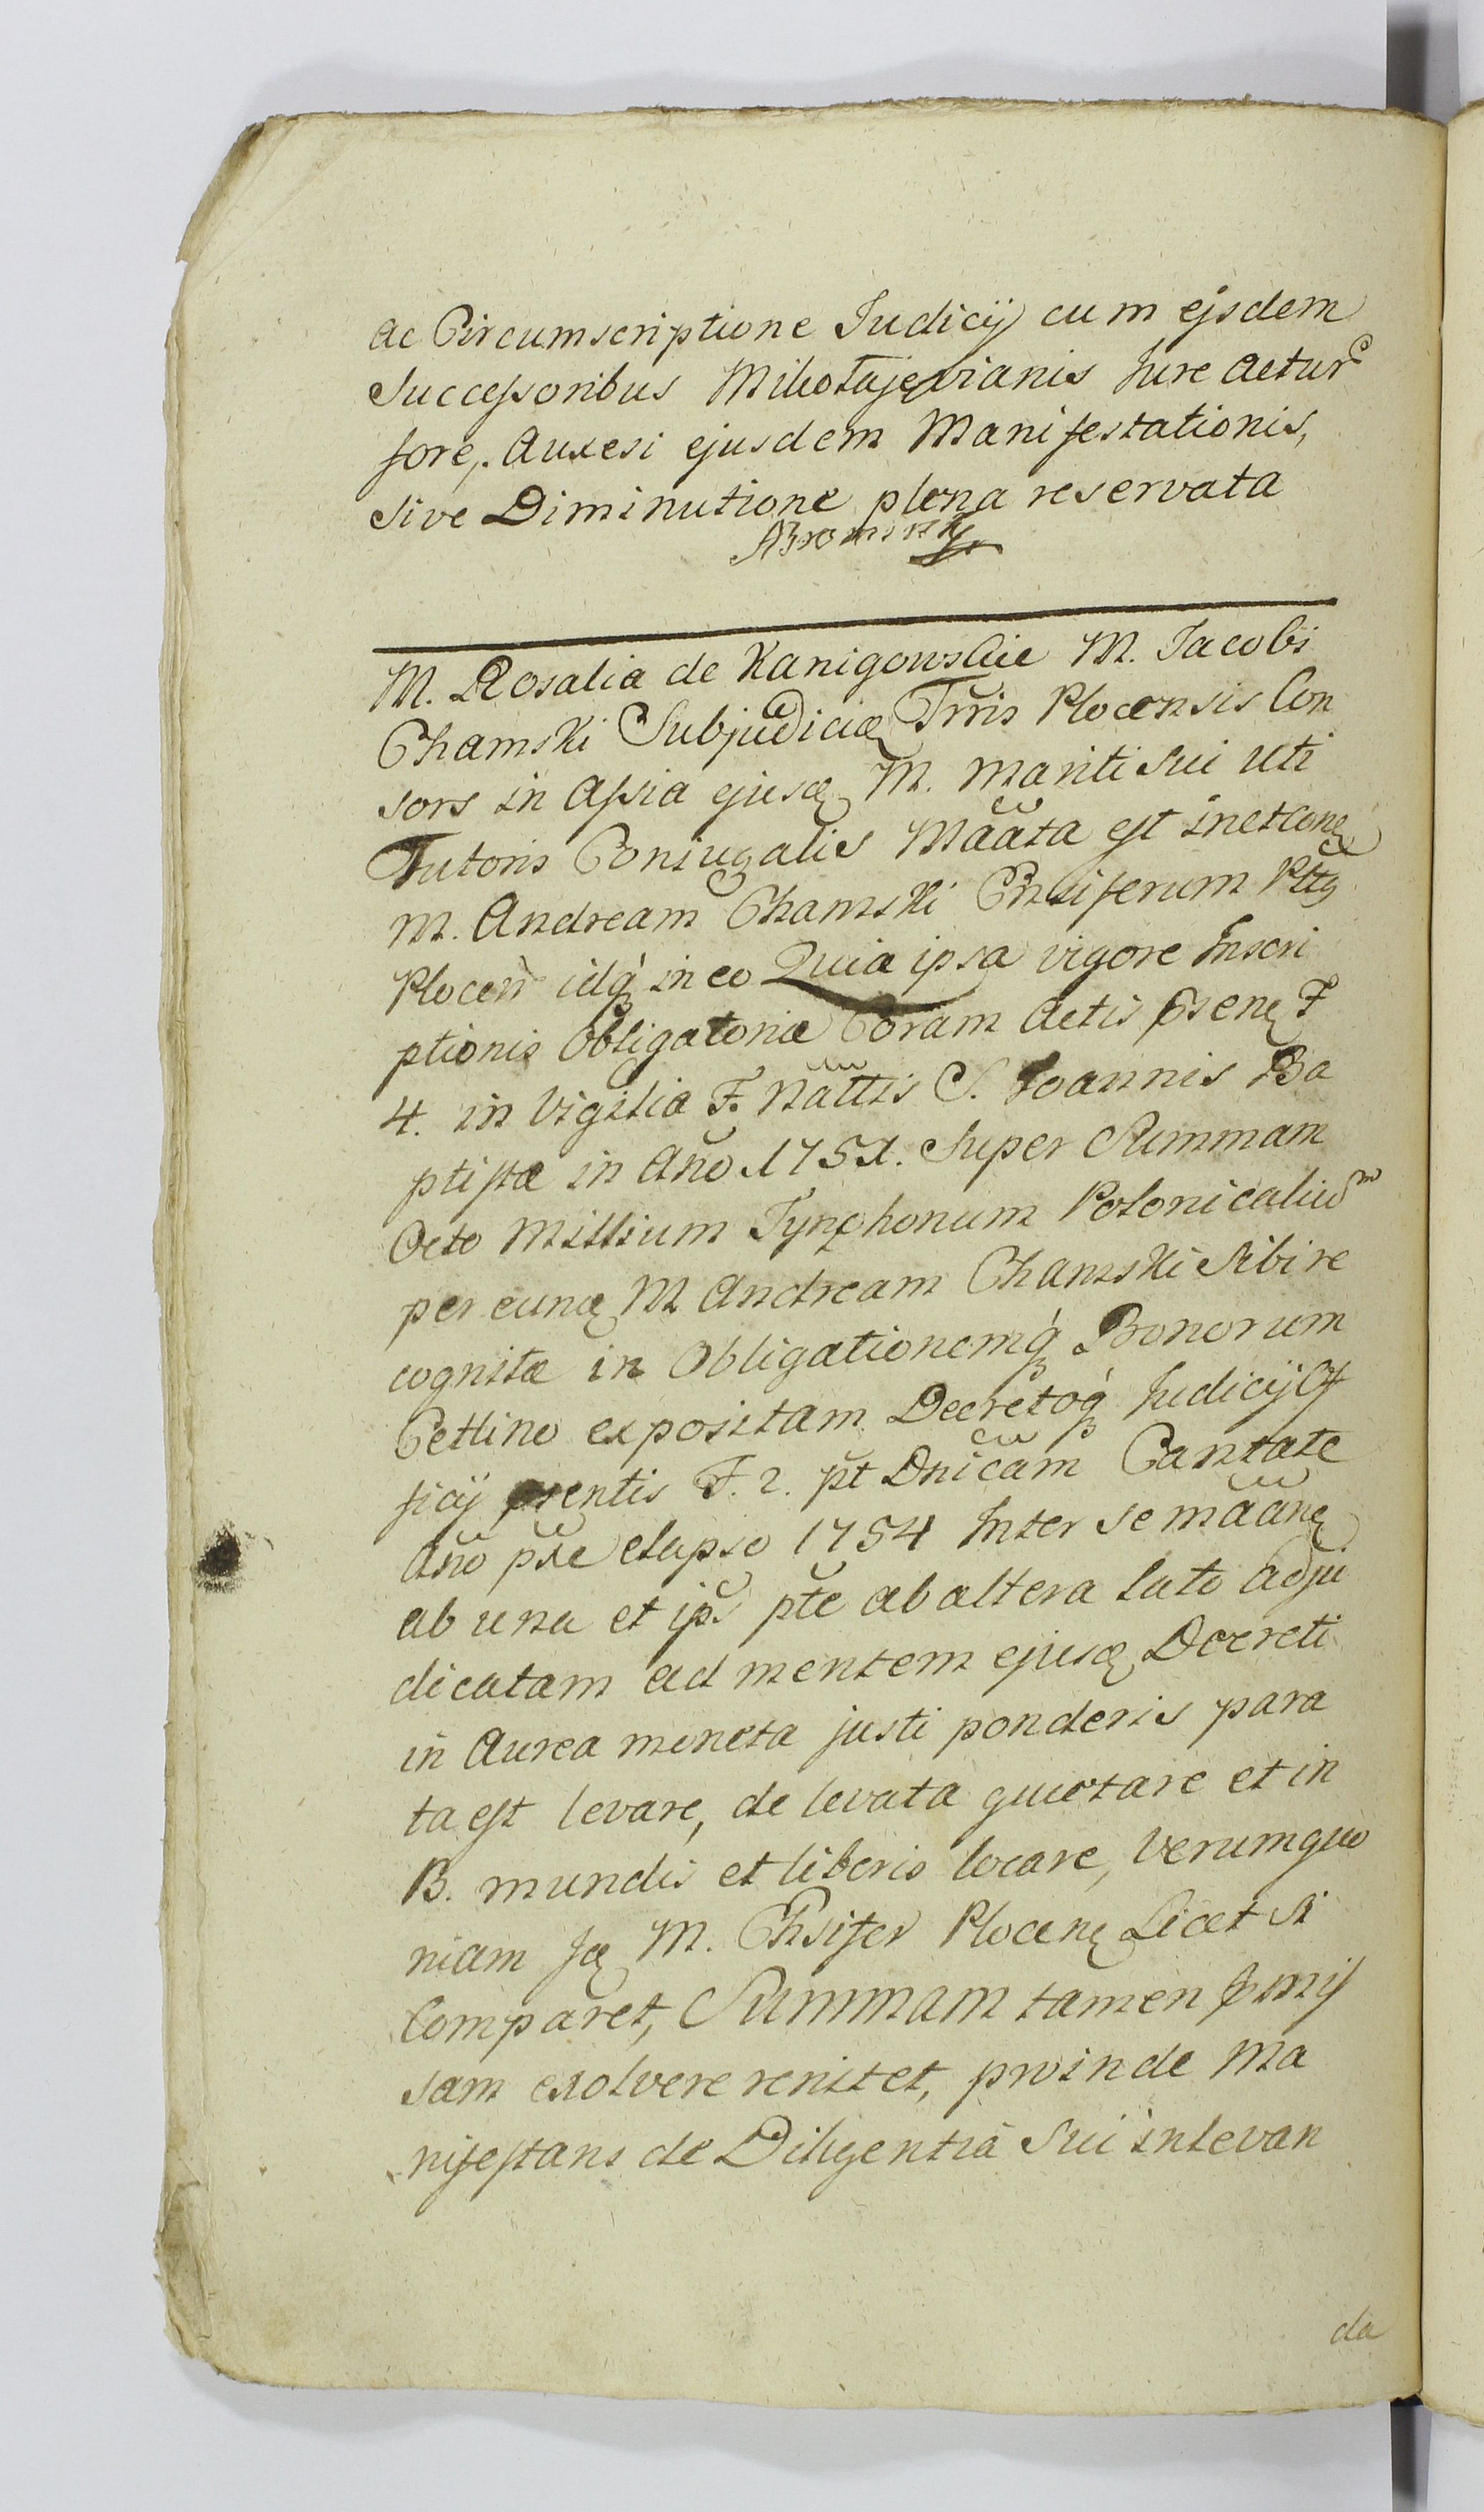 ac Circumscriptione Judicij cum ejsdem
Successoribus Mikołajevianis Jure actur
fore, Auxesi ejusdem Manifestationis,
sive Diminutione plena reservata
M. Rosalia de Kanigowskie M. Jacobi
Chamski Subjudicis Trris Plocensis Con
sors in Assia ejusd M. mariti sui uti
Tutoris Coniugalis Mãata est in et cone
M. Andream Chamski Ensiferum Pttu
Plocen idq in eo Quia ipsa vigore Inscri
ptionis Obligatoriæ Coram Actis psene F
4. in Vigilia F. Nattis S. Joannis Ba
ptistæ in Año 1751. Super Summam
Octo Millium Tynphonum Polonicaliu m
per eund M Andream Chamski sibi re
cognitæ in Obligationemq Bonorum
Cettino expositam Decretoq Judicij Of
ficij psentis F. 2. pt Dnicam Cantate
Año pxe elapso 1754 Inter se mãane
ab una et ips pte ab altera lato adju
dicatam ad mentem ejusd Decreti
in Aurea moneta justi ponderis para
ta est levare, de levata quietare et in
B. mundis et liberis locare, Verum quo
niam M. Ensifer Plocene Licet si
Comparet, Summam tamen pmis
sam exolvere renitet, proinde Ma
nifestans de Diligentia sui in levan
da